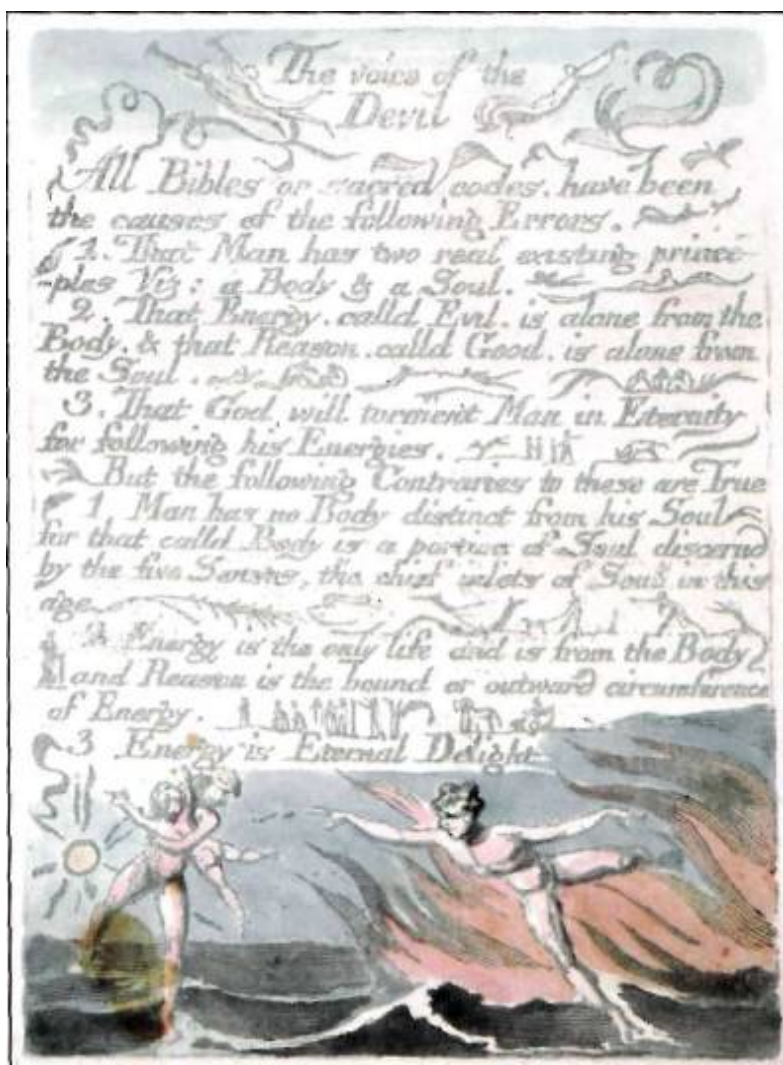 The voice of the
Devil
All Bibles or sacred codes. have been
the causes of the following Errors.
1. That Man has two real existing princi-
-ples Viz: a Body & a Soul.
2. That Energy. calld Evil. is alone from the
Body. & that Reason. calld Good. is alone from
the Soul.
3. That God will torment Man in Eternity
for following his Energies.
But the following Contraries to these are True
1 Man has no Body distinct from his Soul
for that calld Body is a portion of Soul discernd
by the five Senses, the chief inlets of Soul in this
age
2 Energy is the only life and is from the Body
and Reason is the bound or outward circumference
of Energy.
3 Energy is Eternal Delight